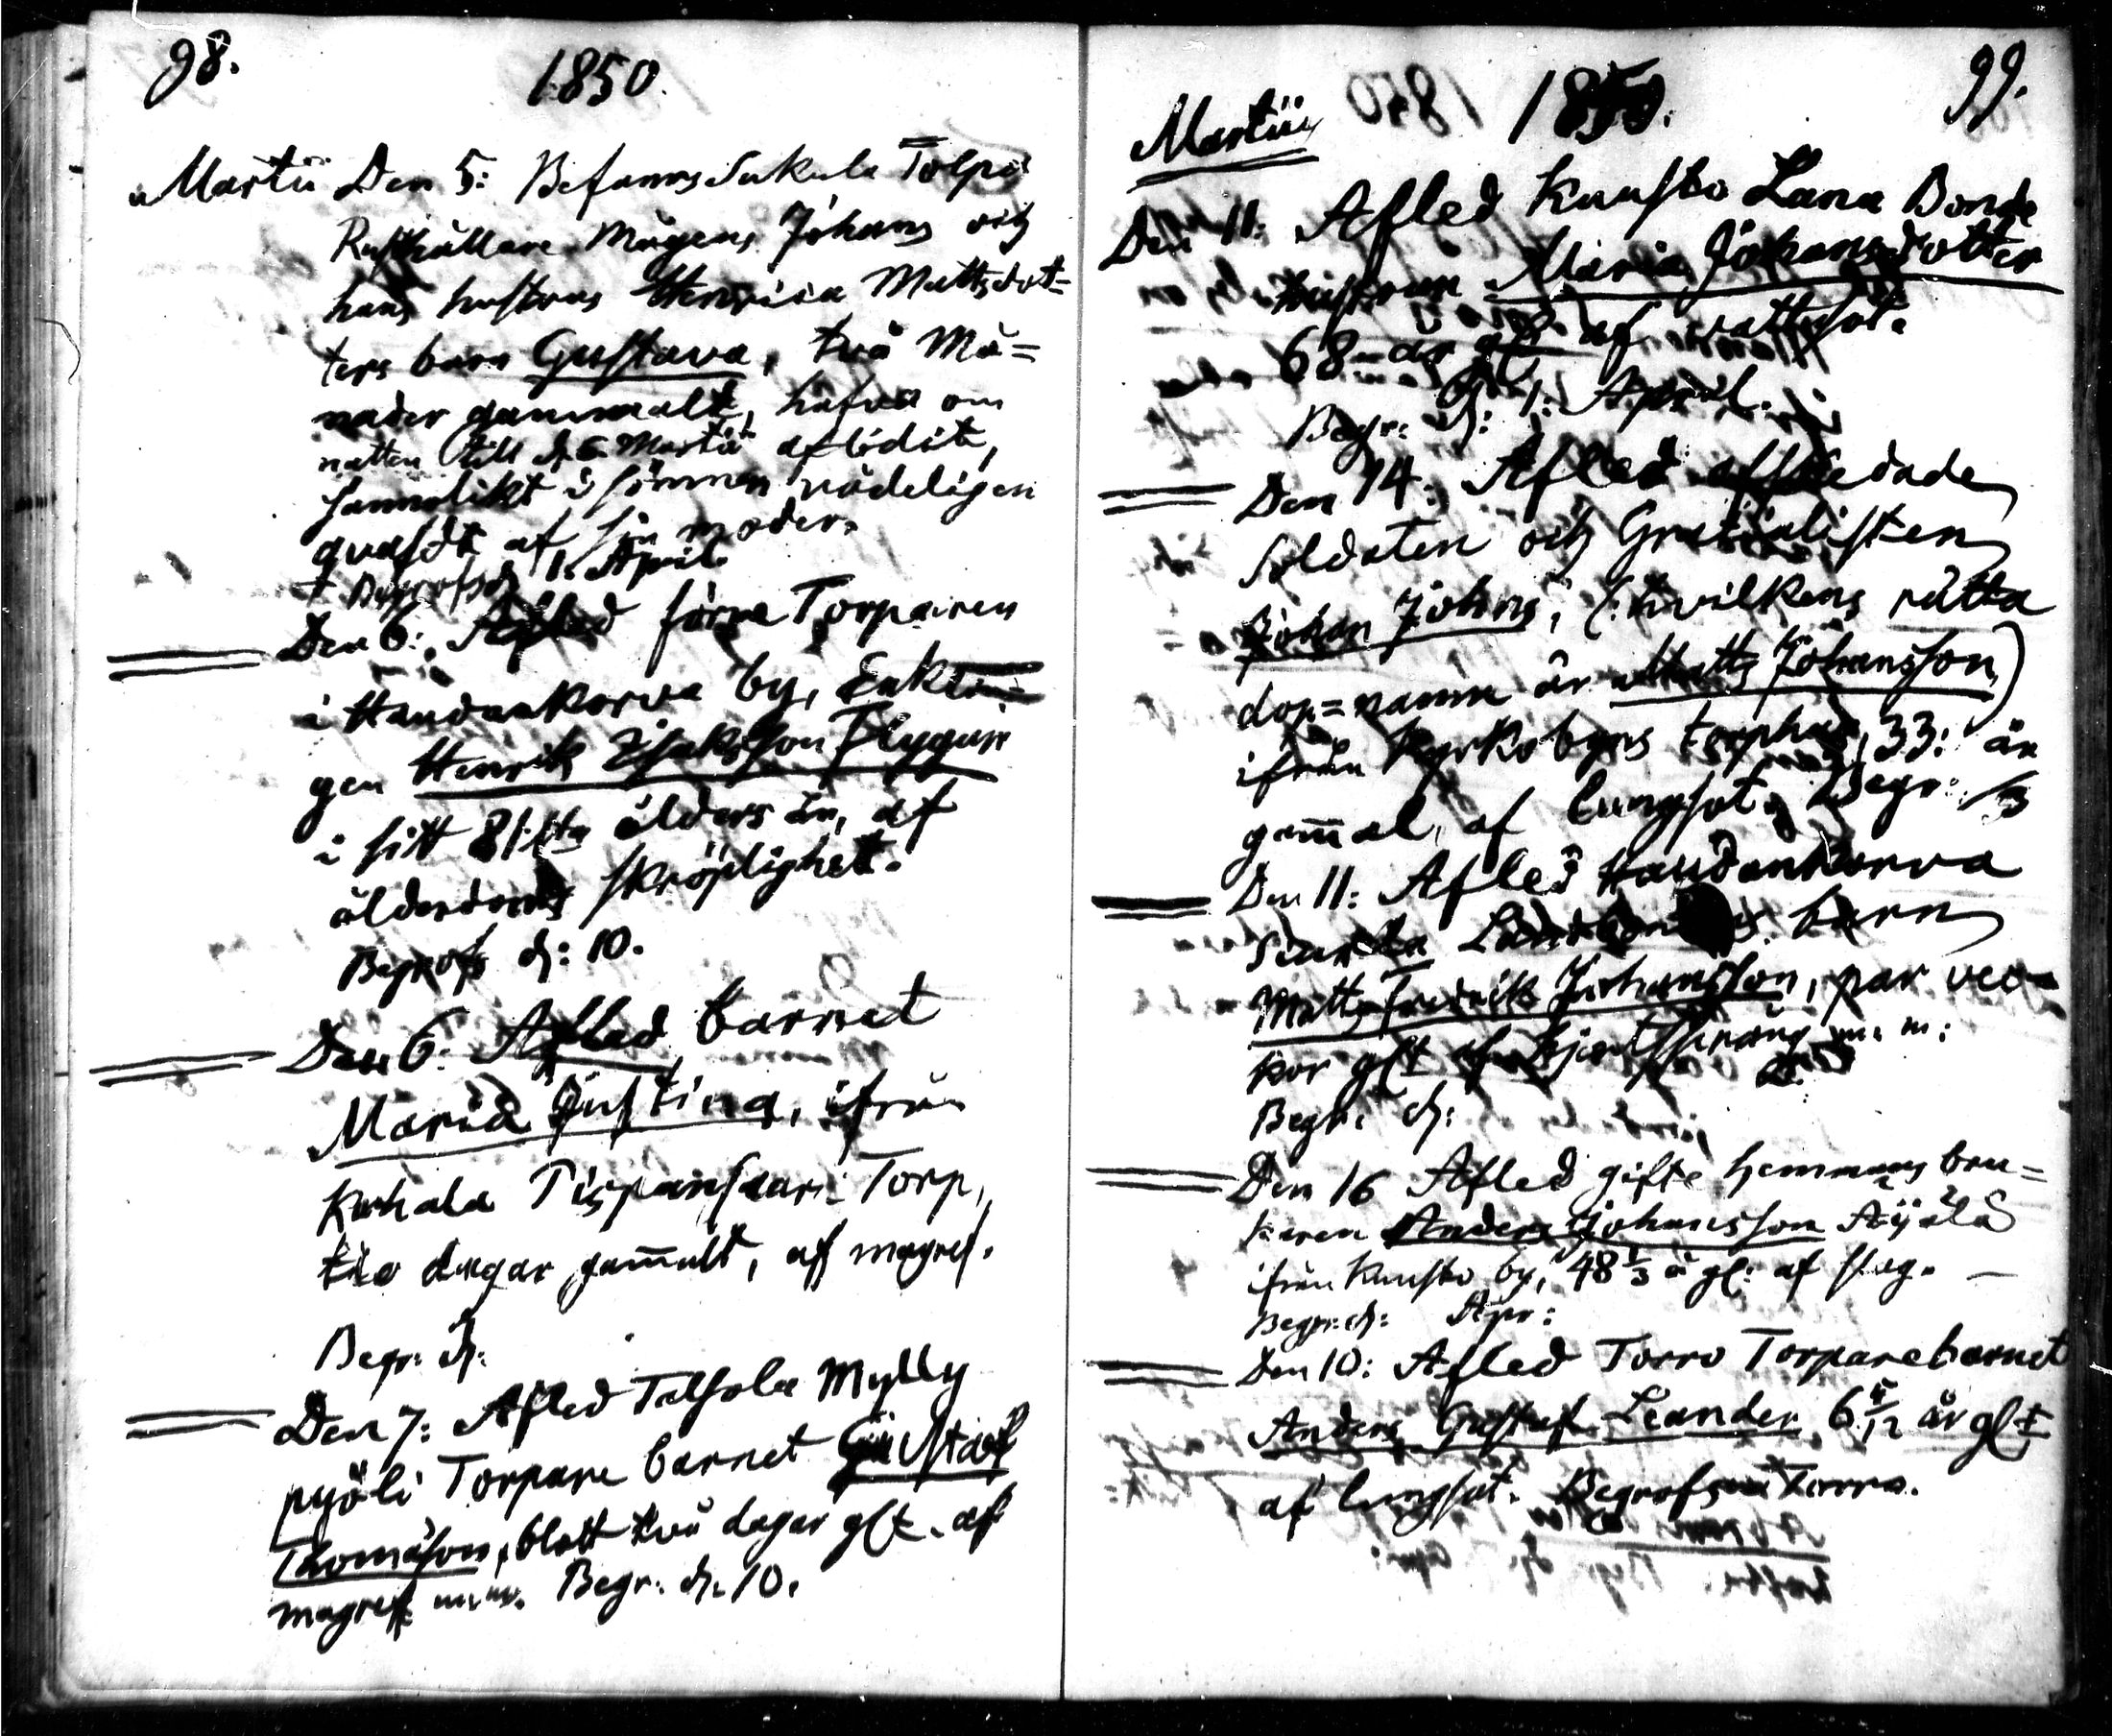 98.
1850.
Martii Den 5: Befanns Sukula Tolpo
Rusthållare Mågens Johans och
hans hustrus Henrica Mattsdot=
ters barn Gustava, två Må=
nader gammalt, hafva om
natten till d. 6 Martii aflidit,
sannolikt i sömnen vådeligen
qvafdt af sin moder.
+ Begrofs d. 1. April
Den 6: Afled förra Torparen
i Haudankorva by, Enklin=
gen Henrik Isaksson Flygar
i sitt 81:sta ålders år, af
ålderdoms skröplighet.
Begrofs d: 10.
Den 6: Afled barnet
Maria Justina, ifrån
Kuhala Pispansaari Torp,
tio dagar gam̅alt, af magref.
Begr: d:
Den 7: Afled Talsola Mylly
pyöli Torpare barnet Gustaf
Thomasson, blott två dagar glt. af
magref m.m. Begr. d. 10.
99.
1850.
Martii
Den 11: Afled Kuusto Lana Bonde
hustrun Maria Johansdotter
68 år gl af vattusot.
Begr: d: 1: April.
Den 14: Afled afskedade
Soldaten och Gratialisten
Johan Johns, (: hvilkens rätta
dop=namn är Matts Johansson,)
ifrån Kyrkobyns torphas, 33: år
gam̅al, af lungsot, Begr:
Den 11: Afled Haudankorva
barn
Matts Fredrik Johansson, par vec=
kor glt af hjertsprång m. m:
Begr: d:
Den 16 Afled gifte hemmans bru=
karen Anders Johansson Äijälä
ifrån Kuusto by, 48 1/3 å gl: af slag.
Begr: d: Apr:
Den 10: Afled Torro Torparebarnet
Anders Gustaf Leander 6 5/12 år glt
af lungsot. Begrofs i Torro.